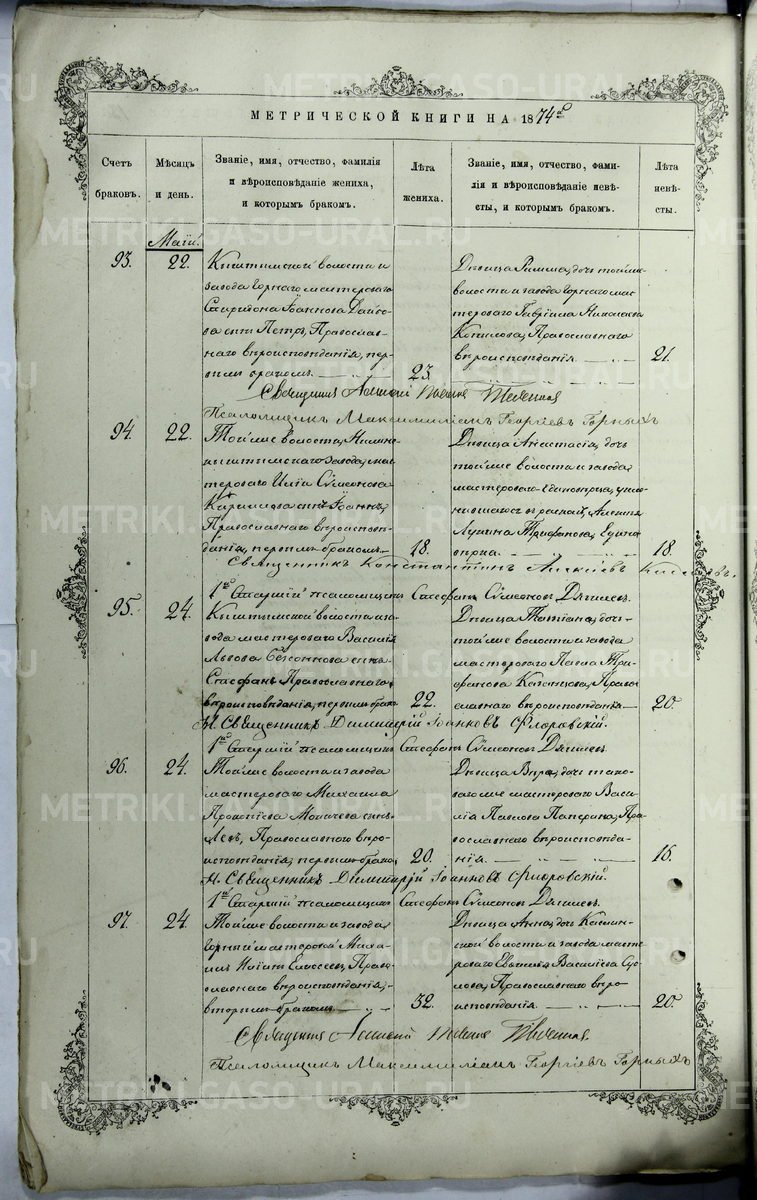 МЕТРИЧЕСКОЙ КНИГИ НА 1874г
Счетъ браковъ.
Мѣсяцъ и день.
Званіе, имя, отчество, фамилія
и вѣроисповѣданіе жениха,
и которымъ бракомъ.
Лѣта жениха.
Званіе, имя, отчество, фами-
лія и вѣроисповѣданіе невѣ-
сты, и которымъ бракомъ.
Лѣта невѣ-
сты.
Маій.
93.
22.
Кыштымской волости и
завода Горнаго мастероваго
Спиридона Іоаннова
сынъ Петръ, Православ-
наго вѣроисповѣданія, пер-
вымъ бракомъ.
23.
Дѣвица Римма, дочь той же
волости и завода Горнаго мас-
тероваго Гавріила Николаева
Копылова, Православнаго
вѣроисповѣданія
21.
Священникъ Алексій
Псаломщикъ Максимиліанъ Георгіевъ Горныхъ
94.
22.
Той же волости, Нижне-
кыштымскаго завода, мас-
тероваго Иліи Сѵмеонова
Кириллова сынъ Іоаннъ,
Православнаго вѣроиспо-
данія, первымъ бракомъ
18.
Дѣвица Анастасія, дочь
той же волости и завода,
мастероваго Единовѣрца,
Лукина Трифонова, Едино-
вѣрка.
18.
Священникъ Константинъ Алексіевъ
1й Старшій псаломщикъ Стефанъ Сѵмеоновъ Дягилевъ
95.
24.
Кыштымской волости и за-
вода мастероваго Василія
Львова сынъ
Стефанъ, Православнаго
вѣроисповѣданія, первымъ брако
22.
Дѣвица Татіана, дочь
той же волости и завода
мастероваго Павла Три-
фонова Право-
славнаго вѣроисповѣданія
20.
Н. Священникъ Димитрій Іоанновъ Флоровскій.
1й Старшій псаломщикъ Стефанъ Сѵмеоновъ Дягилевъ
96.
24.
Той же волости и завода
мастероваго Михаила
Прокопіева сынъ
Левъ, Православнаго вѣро-
исповѣданія, первымъ брако
20.
Дѣвица Вѣра, дочь тако-
ваго же мастероваго Васи-
лія Павлова Паперина, Пра-
вославнаго вѣроисповѣда-
нія.
16.
Н. Священникъ Димитрій Іоанновъ Флоровскій.
1й Старшій псаломщикъ Стефанъ Сѵмеоновъ Дягилевъ
97.
24.
Той же волости и завода
горный мастеровой Миха-
илъ Иліинъ Елисеевъ, Право-
славнаго вѣроисповѣданія,
вторымъ бракомъ
32.
Дѣвица Анна, дочь Каслин-
ской волости и завода масте-
роваго Евѳимія Васильева Су-
лова, Православнаго вѣро-
исповѣданія.
20.
Священникъ Алексій
Псаломщикъ Максимиліанъ Георгіевъ Горныхъ
METRIKI.GASO-URAL.RU